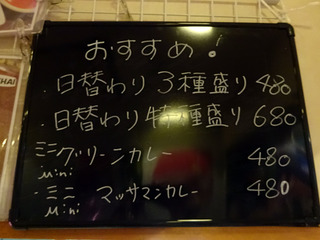 おすすめ!
・日替わり3種盛り 480
・日替わり特種盛り 680
ミニ グリーンカレー 480
Mini
・ミニ マッサマンカレー 480
Mini
HAI